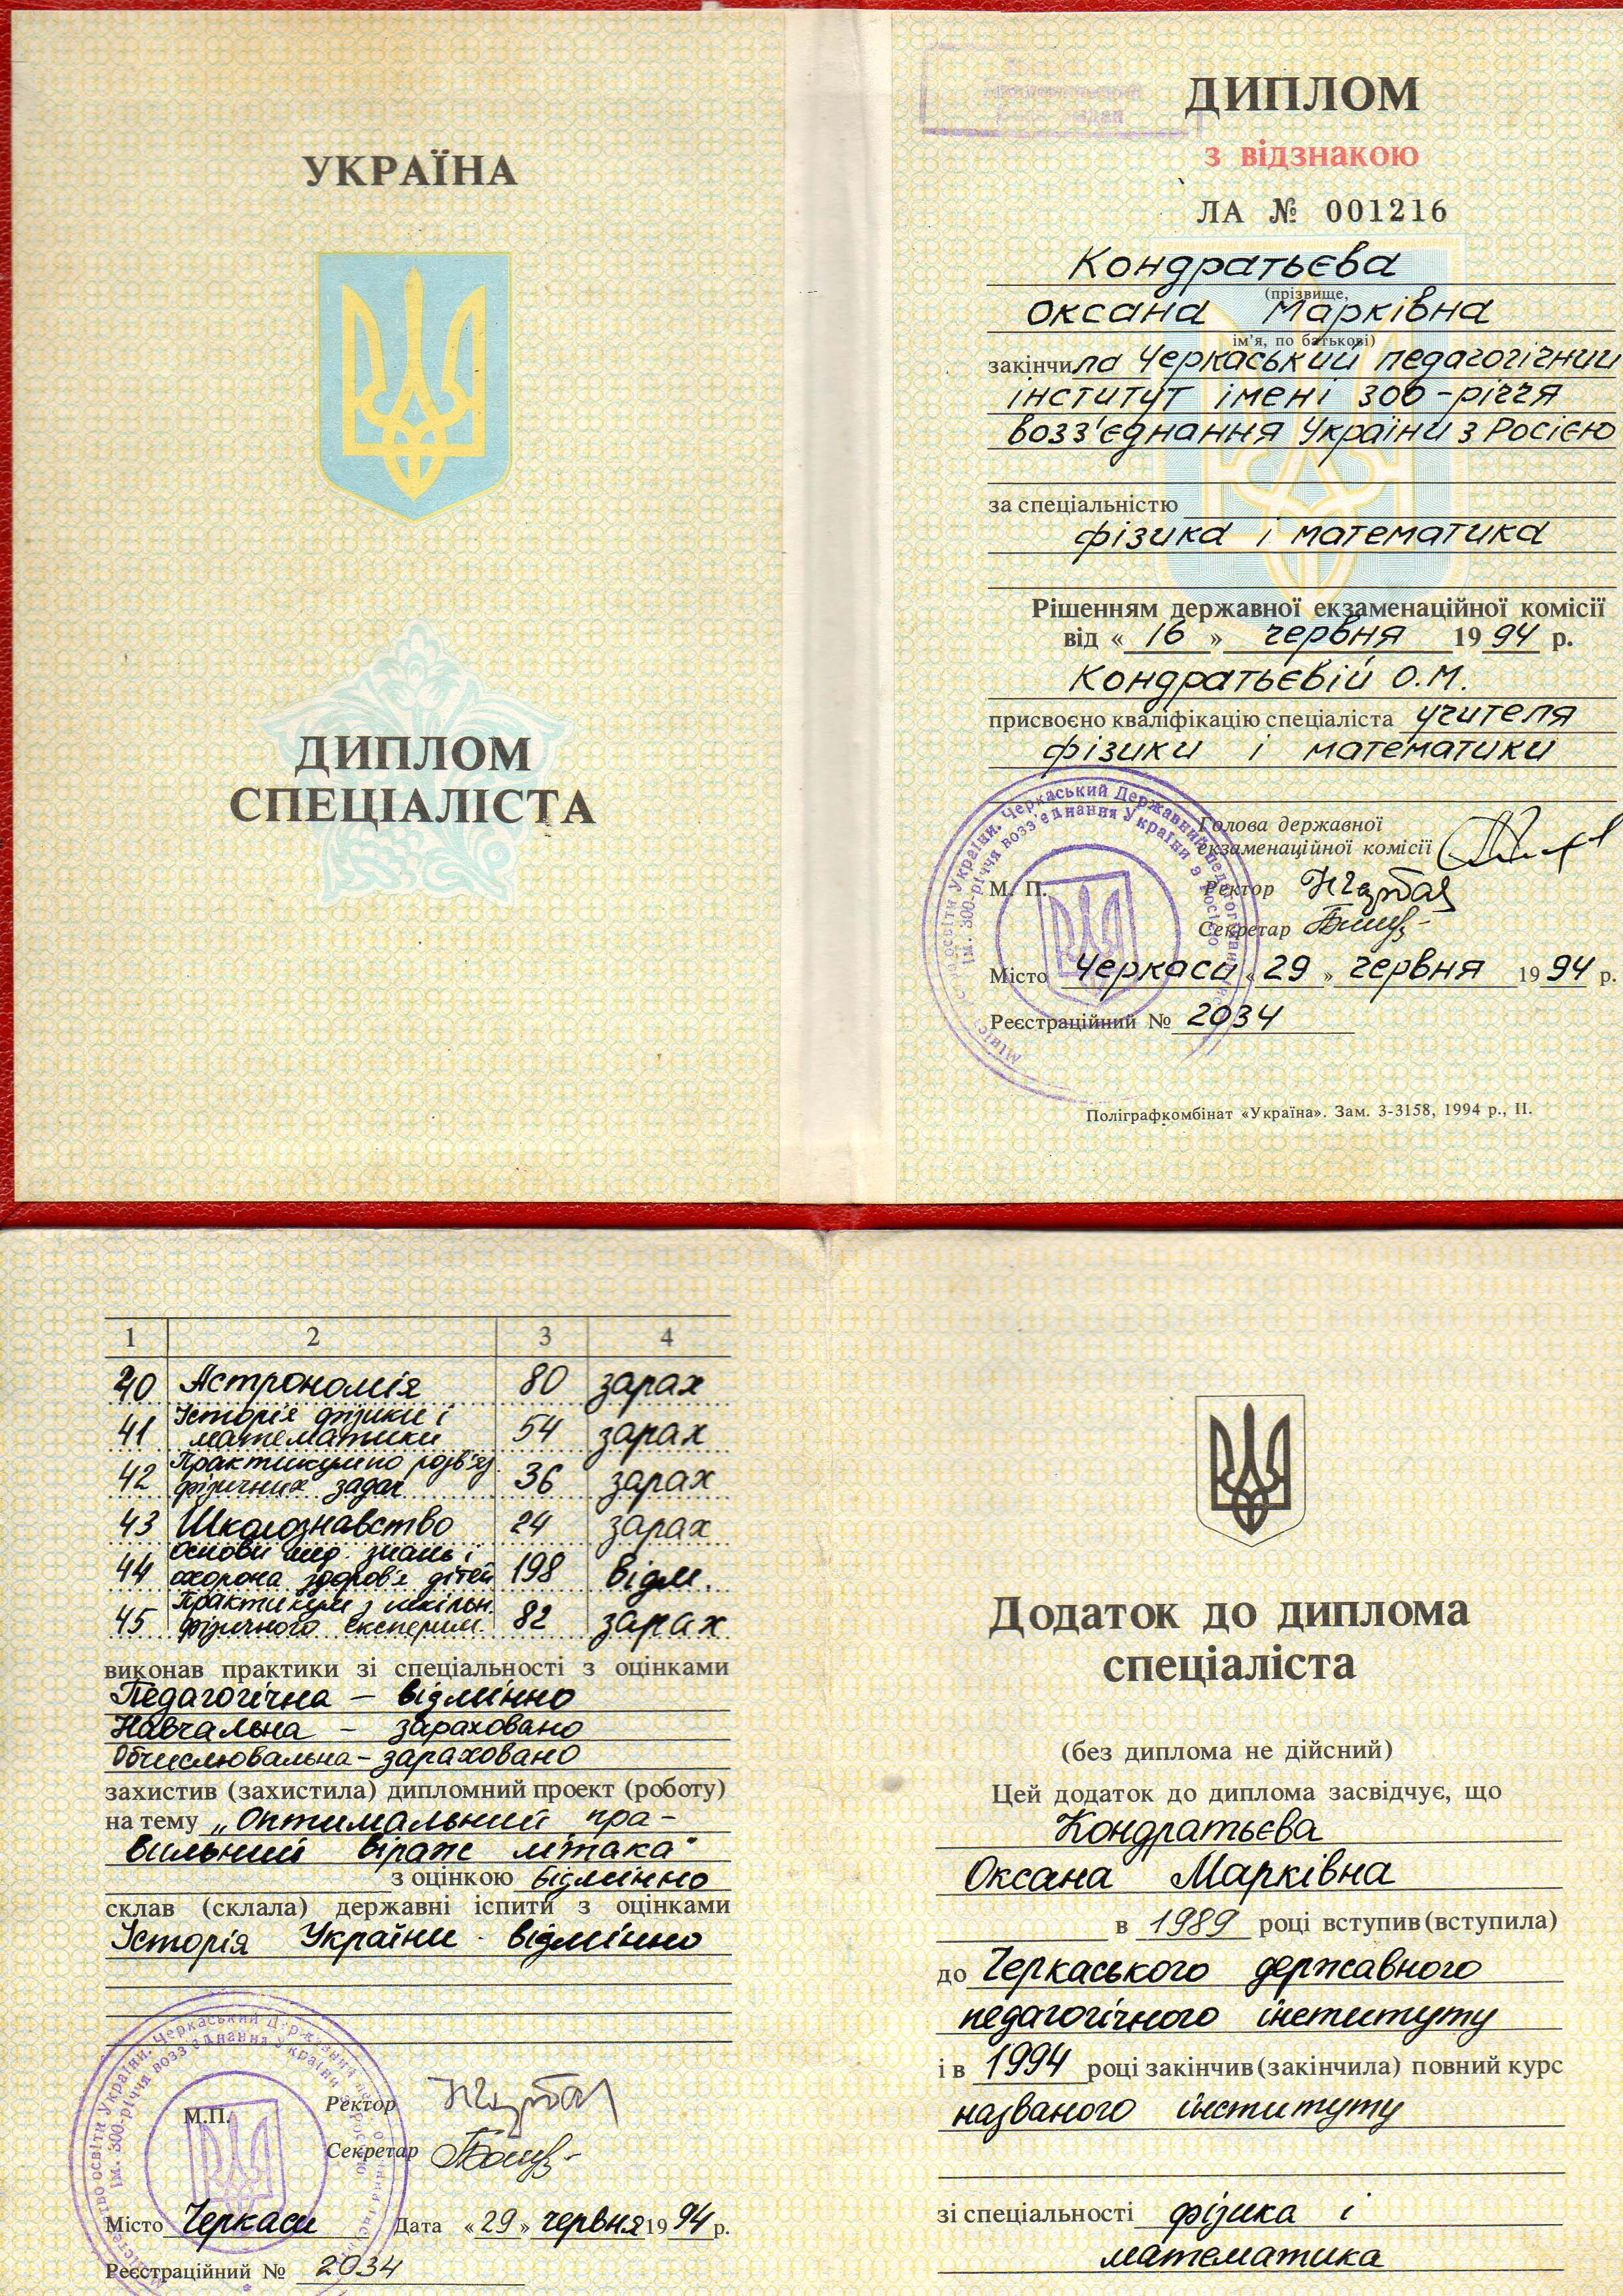 УКРАЇНА
ДИПЛОМ
СПЕЦІАЛІСТА
ДИПЛОМ
з відзнакою
ЛА № 001216
Кондратьєва
(прізвище,
Оксана Марківна
ім'я, по батькові)
закінчила Черкаський педагогічний
інститут імені 300-річчя
возз'єднання України з Росією
за спеціальністю
фізика і математика
Рішенням державної екзаменаційної комісії
від « 16 » червня 1994 р.
Кондратьєвій О.М.
присвоєно кваліфікацію спеціаліста учителя
фізики і математики
Голова державної
екзаменаційної комісії
М. П. Ректор
Секретар
Місто Черкаси «29» червня 1994 р.
Реєстраційний № 2034
Міністерство освіти України. Черкаський Державний педагогічний
ім. 300-річчя возз'єднання України з Росією
Поліграфкомбінат «Україна». Зам. 3-3158, 1994 р., II.
1 2 3 4
40 Астрономія 80 зарах
41 Історія фізики і
математики 54 зарах
42 Практикум по розв'яз.
фізичних задач 36 зарах
43 Школознавство 24 зарах
44 Основи мед. знань і
охорона здоров'я дітей 198 відм.
45 Практикум з шкільн.
фізичного експерим. 82 зарах
виконав практики зі спеціальності з оцінками
Педагогічна – відмінно
Навчальна – зараховано
Обчислювальна – зараховано
захистив (захистила) дипломний проект (роботу)
на тему „Оптимальний пра-
вильний віраж літака"
з оцінкою відмінно
склав (склала) державні іспити з оцінками
Історія України - відмінно
М.П. Ректор
Секретар
Місто Черкаси Дата «29» червня 1994 р.
Реєстраційний № 2034
Міністерство освіти України. Черкаський Державний
ім. 300-річчя возз'єднання України з Росією
Додаток до диплома
спеціаліста
(без диплома не дійсний)
Цей додаток до диплома засвідчує, що
Кондратьєва
Оксана Марківна
в 1989 році вступив (вступила)
до Черкаського державного
педагогічного інституту
і в 1994 році закінчив (закінчила) повний курс
названого інституту
зі спеціальності фізика і
математика